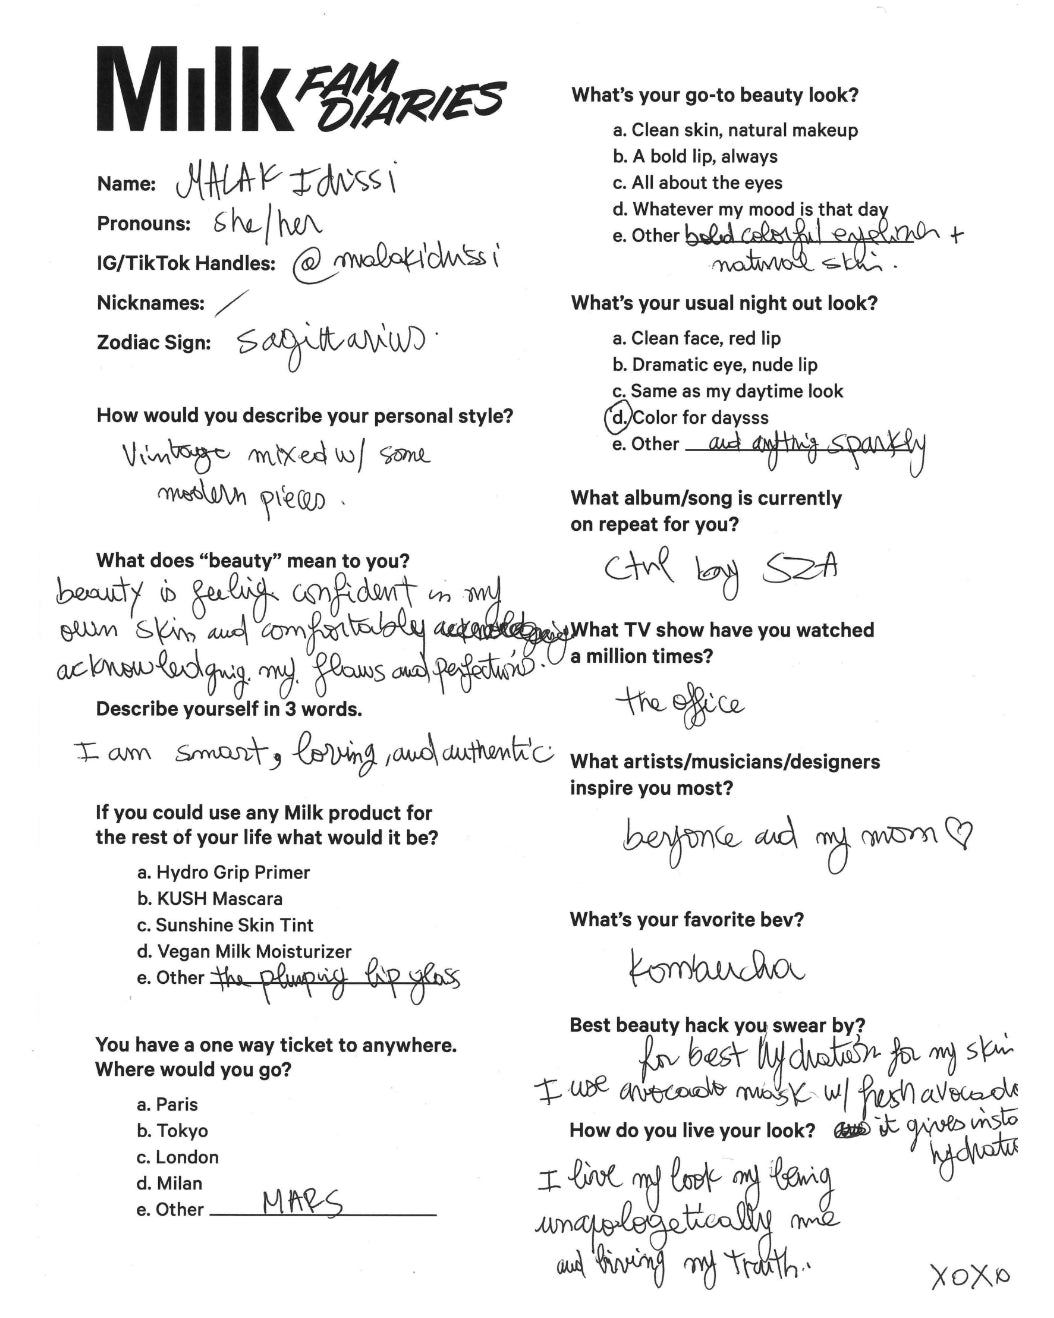 Milk FAM DIARIES
Name: MALAK Idrissi
Pronouns: she/her
IG/TikTok Handles: @malakidrissi
Nicknames: /
Zodiac Sign: Sagittarius.
How would you describe your personal style?
Vintage mixed w/ some
modern pieces.
What does “beauty” mean to you?
beauty is feeling confident in my
own skin and comfortably
acknowledgnig my flaws and perfections.
Describe yourself in 3 words.
I am smart, loving, and authentic.
If you could use any Milk product for
the rest of your life what would it be?
a. Hydro Grip Primer
b. KUSH Mascara
c. Sunshine Skin Tint
d. Vegan Milk Moisturizer
e. Other the plumping lip gloss
You have a one way ticket to anywhere.
Where would you go?
a. Paris
b. Tokyo
c. London
d. Milan
e. Other MARS
What's your go-to beauty look?
a. Clean skin, natural makeup
b. A bold lip, always
c. All about the eyes
d. Whatever my mood is that day
e. Other bold colorful eyeliner +
natural skin.
What's your usual night out look?
a. Clean face, red lip
b. Dramatic eye, nude lip
c. Same as my daytime look
d. Color for daysss
e. Other and anything sparkly
What album/song is currently
on repeat for you?
Ctrl by SZA
What TV show have you watched
a million times?
the office
What artists/musicians/designers
inspire you most?
beyonce and my mom ♡
What's your favorite bev?
Kombucha
Best beauty hack you swear by?
for best hydration for my skin
I use avocado mask w/ fresh avocado
it gives insta
hydratio
How do you live your look?
I live my look my being
unapologetically me
and living my truth.
XOXO